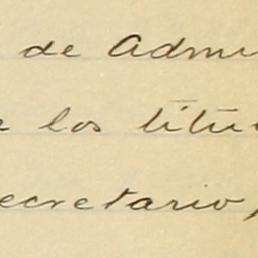 de Admi
e los títu
ecretario,